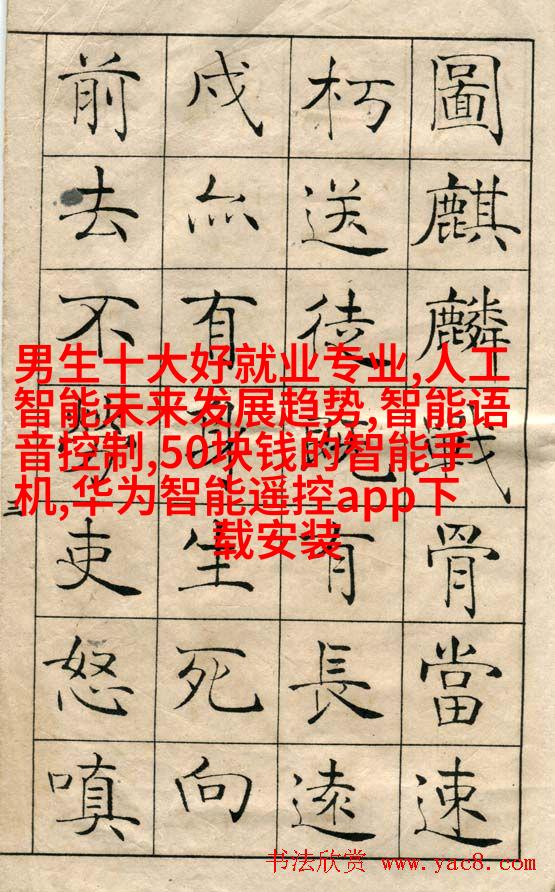 圖麒麟戰骨當速
朽送徒既有長遠
戍亦有身生死向
前去不勞吏怒嗔
三
男生十大好就业专业,人工
智能未来发展趋势,智能语
音控制,50块钱的智能手
机,华为智能遥控app下
载安装
书法欣赏 www.yac8.com